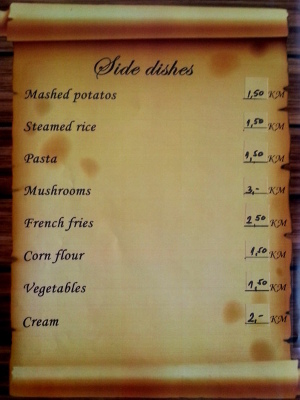 Side dishes
Mashed potatos 1,50 KM
Steamed rice 1,50 KM
Pasta 1,50 KM
Mushrooms 3,- KM
French fries 2,50 KM
Corn flour 1,50 KM
Vegetables 1,50 KM
Cream 2,- KM